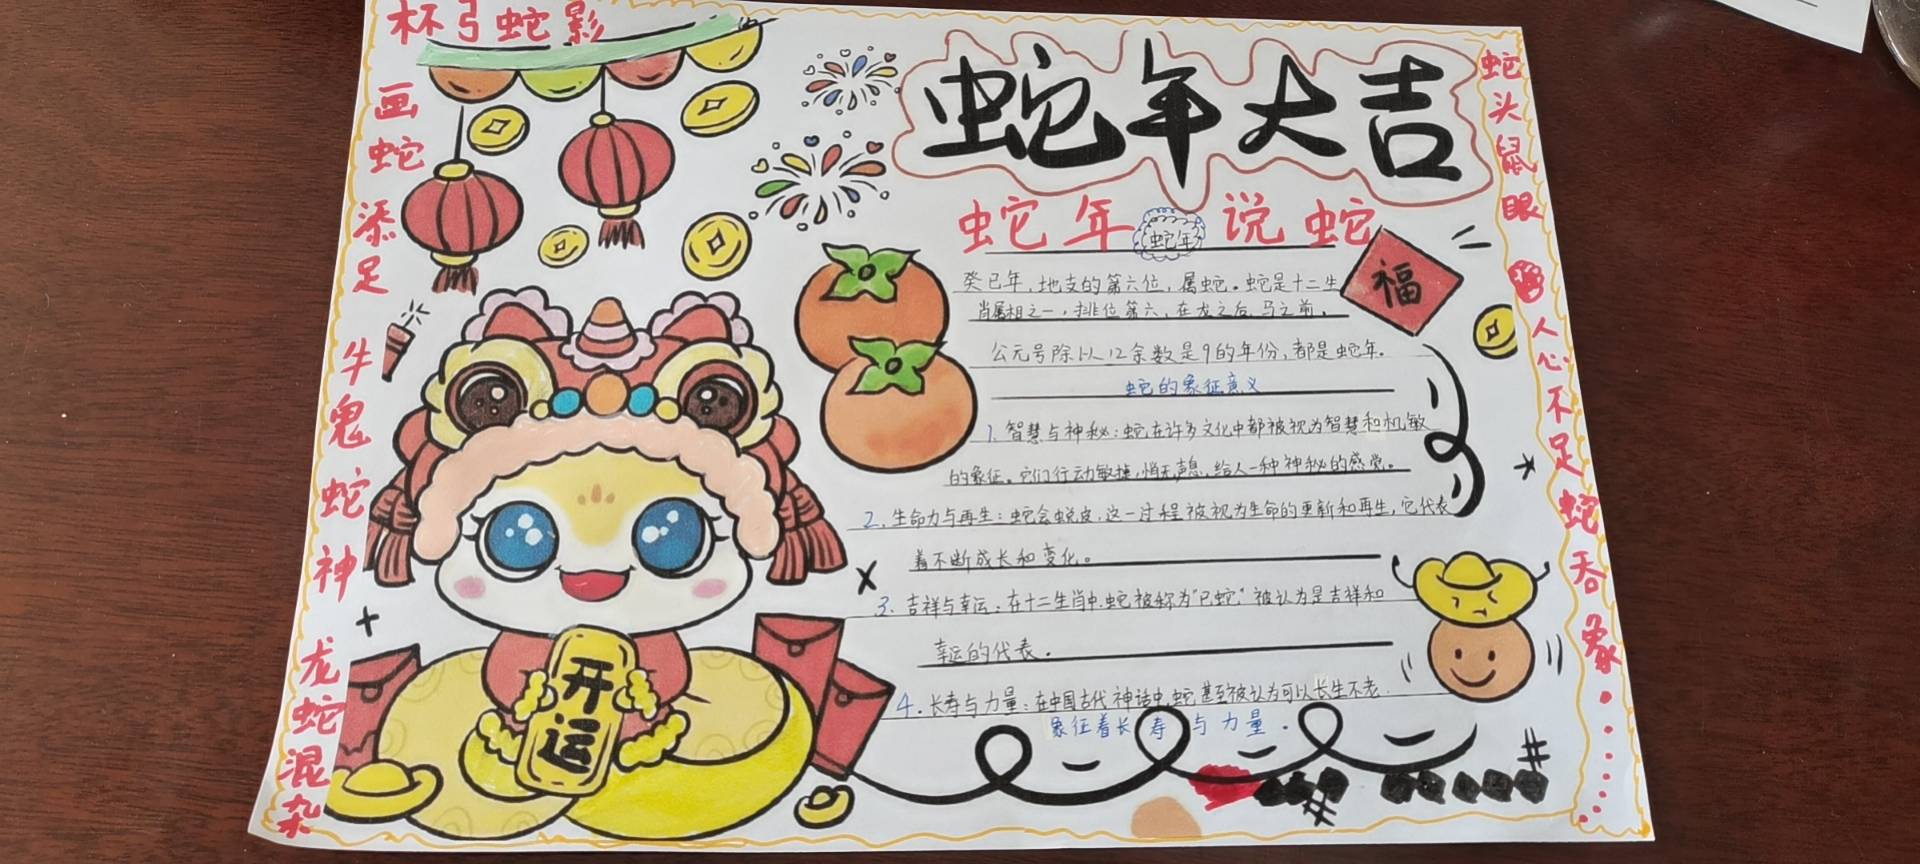 杯弓蛇影
画蛇添足
牛鬼蛇神
龙蛇混杂
蛇年大吉
蛇年 蛇年 说蛇
福
癸巳年，地支的第六位，属蛇。蛇是十二生
肖属相之一，排位第六，在龙之后，马之前。
公元号除以12余数是9的年份，都是蛇年。
蛇的象征意义
1. 智慧与神秘：蛇在许多文化中都被视为智慧和机敏
的象征。它们行动敏捷，悄无声息，给人一种神秘的感觉。
2. 生命力与再生：蛇会蜕皮，这一过程被视为生命的更新和再生，它代表
着不断成长和变化。
3. 吉祥与幸运：在十二生肖中，蛇被称为“巳蛇”被认为是吉祥和
幸运的代表。
4. 长寿与力量：在中国古代神话中，蛇甚至被认为可以长生不老．
象征着长寿与力量．
开运
蛇头鼠眼
人心不足蛇吞象······